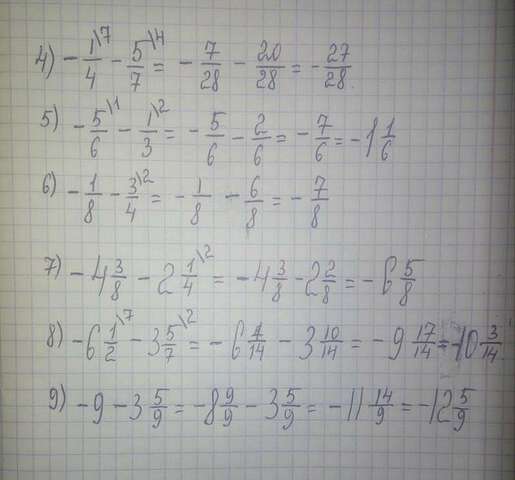 4) -1\7/4 - 5\4/7 = -7/28 - 20/28 = -27/28.
5) -5\1/6 - 1\2/3 = -5/6 - 2/6 = -7/6 = -1 1/6
6) -1/8 - 3\2/4 = -1/8 - 6/8 = -7/8
7) -4 3/8 - 2 1\2/4 = -4 3/8 - 2 2/8 = -6 5/8
8) -6 1\7/2 - 3 5\2/7 = -6 7/14 - 3 10/14 = -9 17/14 = -10 3/14
9) -9 - 3 5/9 = -8 9/9 - 3 5/9 = -11 14/9 = -12 5/9